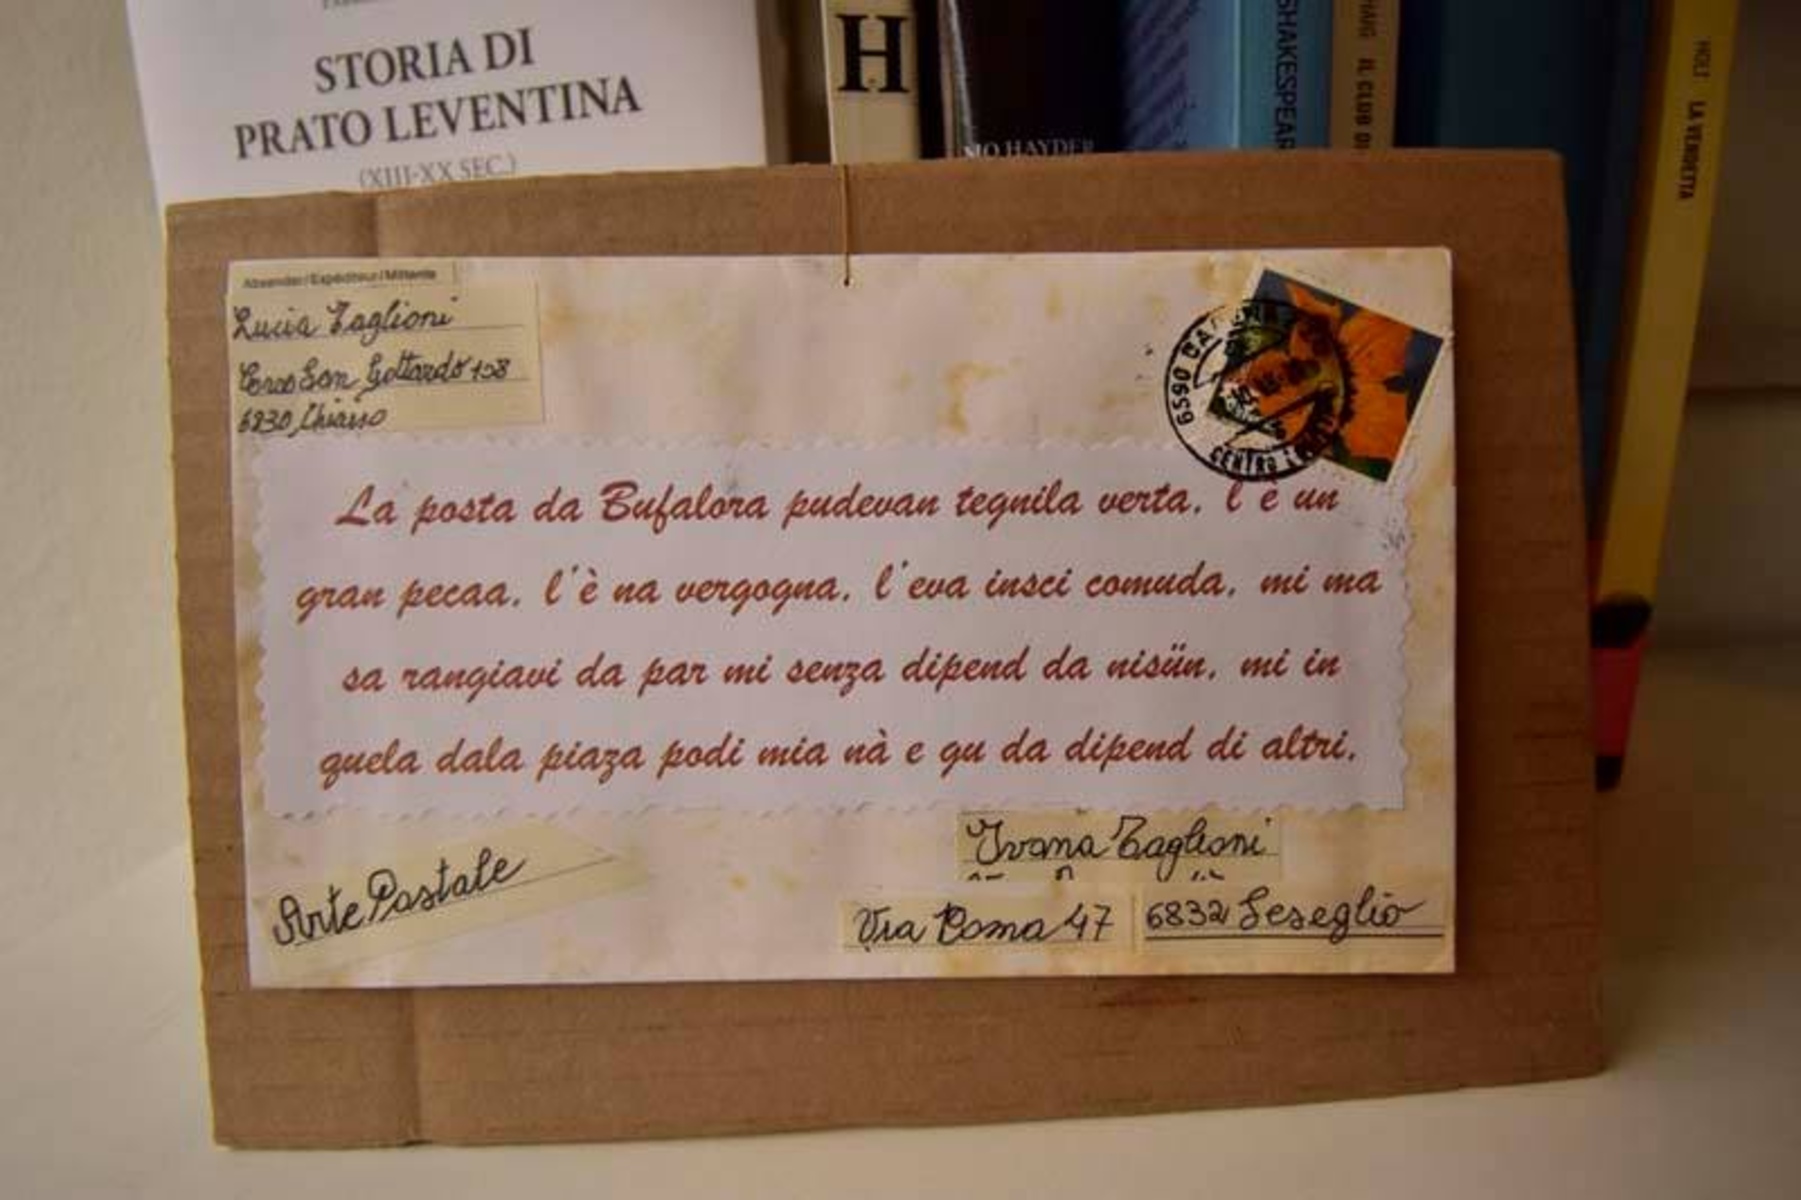 STORIA DI
PRATO LEVENTINA
(XIII-XX SEC.)
H
MO HAYDER
SHAKESPEAR
IL CLUB DI
HOLT LA VENDETTA
Absender/Expéditeur/Mittente
Lucia Taglioni
Corso San Gottardo 108
6830 Chiasso
6590
CENTRO
La posta da Bufalora pudevan tegnila verta, l'è un
gran pecaa, l'è na vergogna, l'eva insci comuda, mi ma
sa rangiavi da par mi senza dipend da nisün, mi in
quela dala piaza podi mia nà e gu da dipend di altri.
Arte Postale
Ivana Taglioni
Via Roma 47
6832 Seseglio